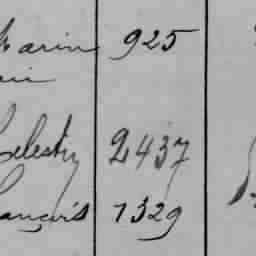 Marin 925
Celestin 2437
François 1329